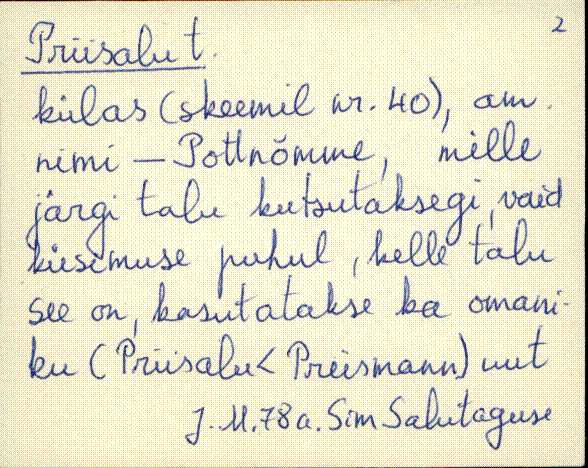 2
Priisalu t.
külas (skeemil nr. 40), am.
nimi – Pottnõmme, mille
järgi talu kutsutaksegi, vaid
küsimuse puhul, kelle talu
see on, kasutatakse ka omani-
ku (Priisalu < Preismann) uut
J. M. 78 a. Sim Salutaguse